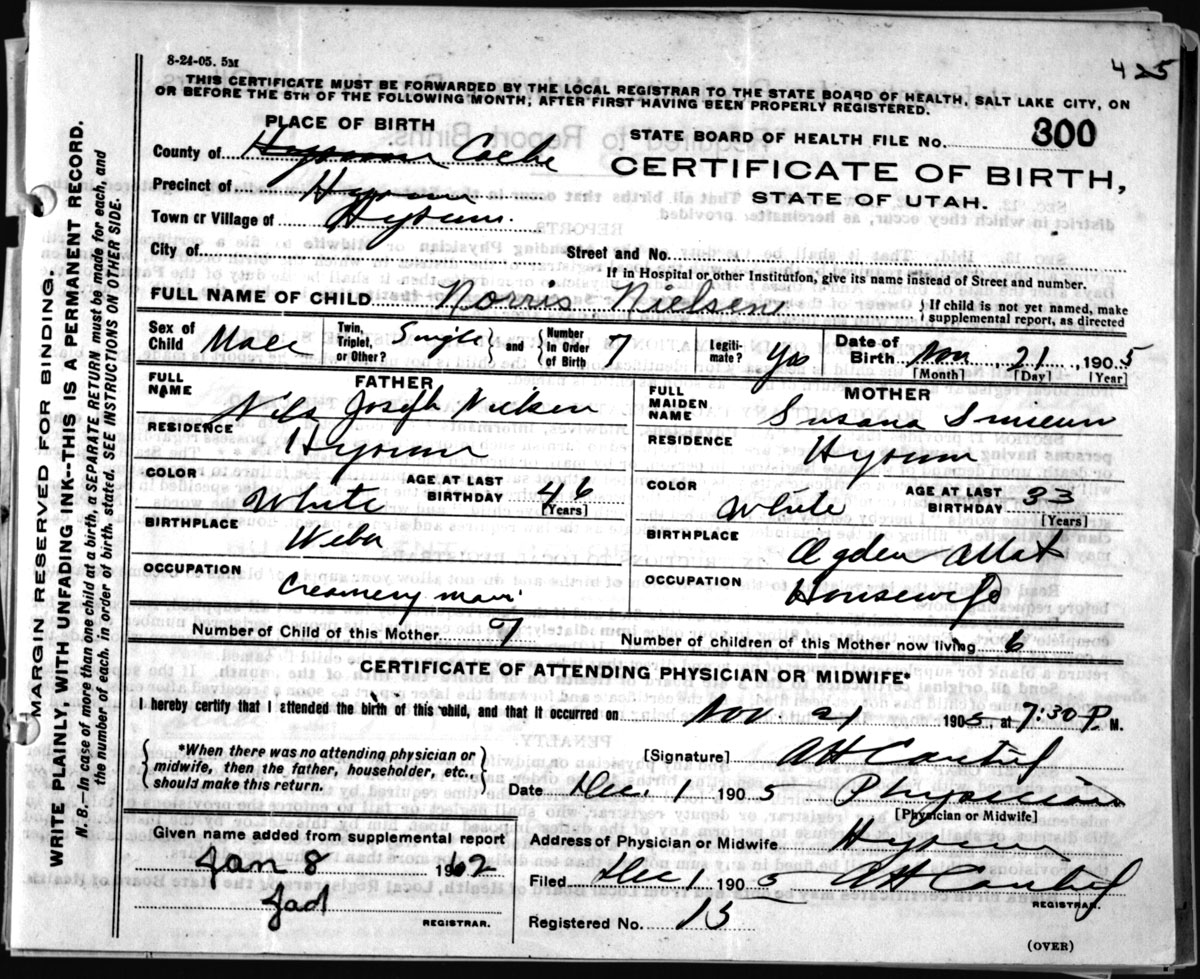 8-24-05. 5M
425
THIS CERTIFICATE MUST BE FORWARDED BY THE LOCAL REGISTRAR TO THE STATE BOARD OF HEALTH, SALT LAKE CITY, ON
OR BEFORE THE 5TH OF THE FOLLOWING MONTH, AFTER FIRST HAVING BEEN PROPERLY REGISTERED.
PLACE OF BIRTH
STATE BOARD OF HEALTH FILE NO. 300
County of Hyrum Cache
CERTIFICATE OF BIRTH,
Precinct of Hyrum
STATE OF UTAH.
Town or Village of Hyrum.
City of
Street and No.
If in Hospital or other Institution, give its name instead of Street and number.
FULL NAME OF CHILD Norris Nielsen
If child is not yet named, make
supplemental report, as directed
Sex of Child Male
Twin, Triplet, or Other? Single
and
Number in Order of Birth 7
Legiti- mate? Yes
Date of Birth Nov 21, 1905
[Month] [Day] [Year]
FATHER
FULL NAME Nils Joseph Nielsen
RESIDENCE Hyrum
COLOR White
AGE AT LAST BIRTHDAY 46
[Years]
BIRTHPLACE
OCCUPATION Creamery man
MOTHER
FULL MAIDEN NAME Susana
RESIDENCE Hyrum
COLOR White
AGE AT LAST BIRTHDAY 33
[Years]
BIRTHPLACE Ogden
OCCUPATION Housewife
Number of Child of this Mother 7
Number of children of this Mother now living 6
CERTIFICATE OF ATTENDING PHYSICIAN OR MIDWIFE*
I hereby certify that I attended the birth of this child, and that it occurred on Nov 21, 1905, at 7:30 P. M.
*When there was no attending physician or
midwife, then the father, householder, etc.,
should make this return.
[Signature] AH
Date Dec. 1 1905 Physician
[Physician or Midwife]
Given name added from supplemental report
Jan 8 1962
REGISTRAR.
Address of Physician or Midwife Hyrum
Filed Dec 1 1905 AH
REGISTRAR.
Registered No. 15
(OVER)
MARGIN RESERVED FOR BINDING.
WRITE PLAINLY, WITH UNFADING INK--THIS IS A PERMANENT RECORD.
N. B.—In case of more than one child at a birth, a SEPARATE RETURN must be made for each, and
the number of each, in order of birth, stated. SEE INSTRUCTIONS ON OTHER SIDE.